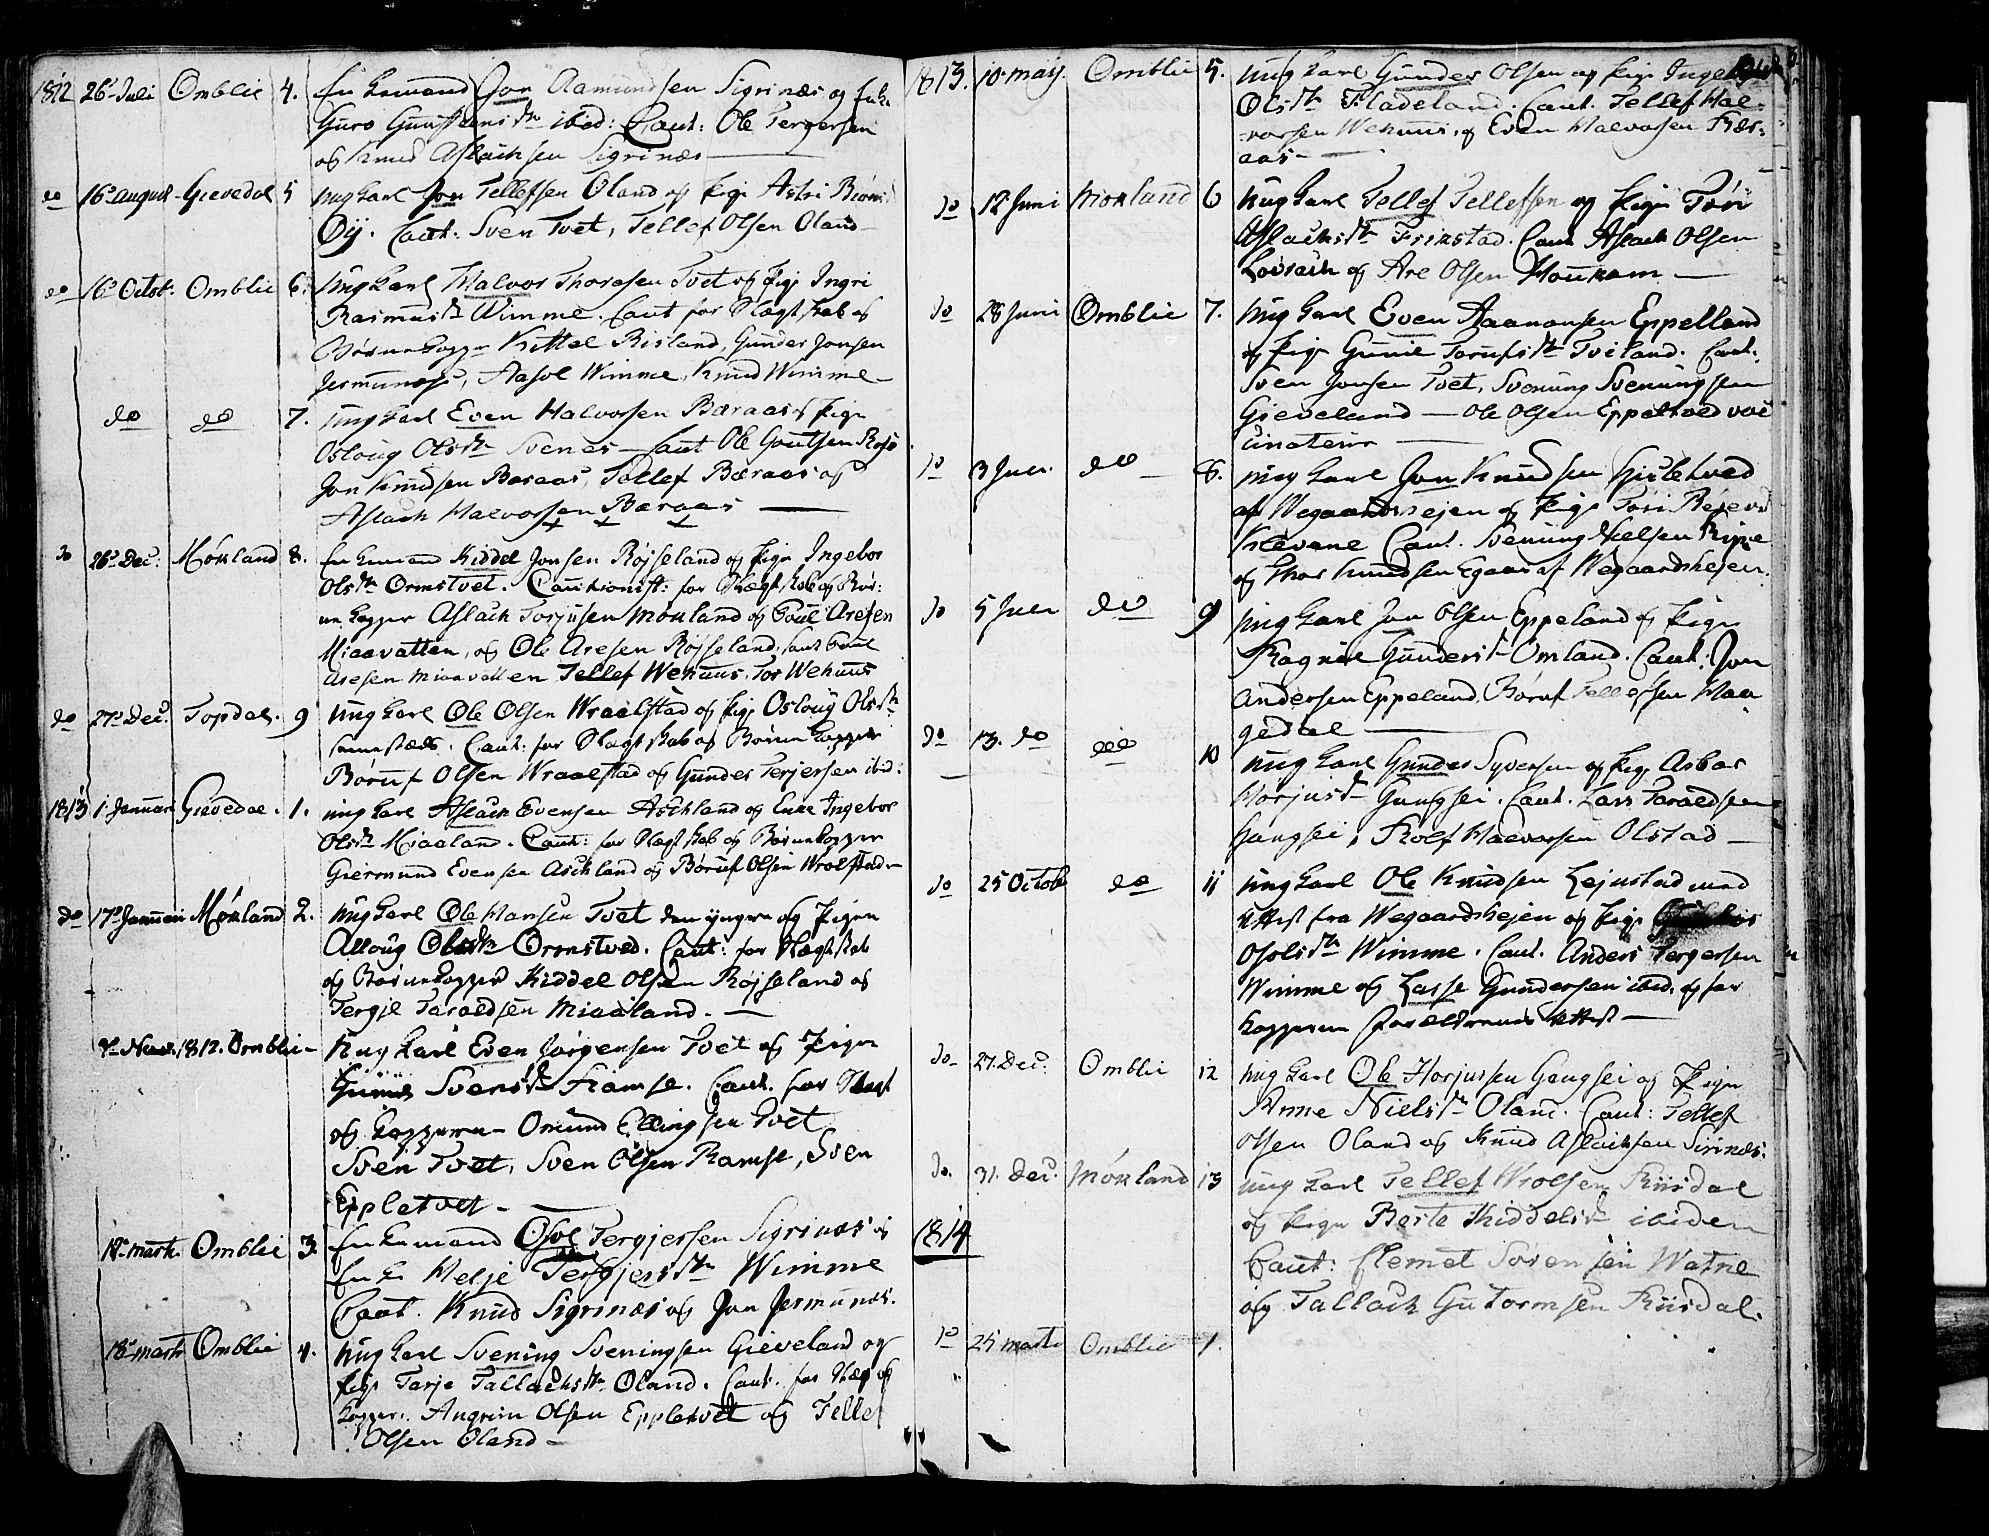 1812 26 Juli Omblie 4. Enkemand Jon Aamundsen Sigrinæs og Enke
Guro Gunstensdtr ibid: Caut: Ole Tergersen
og Knud Aslachsen Sigrinæs
do 16 august Gievedal 5 ungkarl Jon Tellefsen Oland og Pige Astri
Øÿ. Caut: Sven Tvet, Tellef Olsen Oland
do 16 Octob. Omblie 6. ungkarl Halvor Thoresen Tvet og Pige Ingri
Rasmusdtr Wimme. Caut for Slægtskab og
Børnekopper Kittel Risland, Gunder Jonsen
Jermunds, Aasol Wimme, Knud Wimme
do do 7. ungkarl Even Halvorsen Bæraas og Pige
Osloug Olsdtr Svenes Caut Ole Gautsen
Jon Knudsen Baraas, Tellef Bæraas og
Aslach Halvorsen Bæraas
do 26 Dec: Møkland 8. Enkemand Kiddel Jonsen Røjseland og Pige Ingebor
Olsdtr Ormstvet. Cautionist: for Slægtskab og Bør-
nekopper Aslach Torjusen Møkland og Poul Aresen
Miaavatten, og Ole Aresen Røjseland, Caut Poul
Aresen Miaavatten Tellef Wehuus, Tor Wehuus
do 27 Dec. Topdal. 9 ungkarl Ole Olsen Wraalstad og Pige Osloug Olsdtr
sammesteds. Caut: for Slægtskab og Børnekopper
Børuf Olsen Wraalstad og Gunder Terjersen ibid.
1813 1 Januari Gievedal. 1. ungkarl Aslach Evensen Aschland og Enke Ingebor
Olsdtr Miaaland. Caut: for Slægtskab og Børnekopper
Giermund Evensen Aschland og Børuf Olsen Wrolstad
do 17 Januari Møkland 2. ungkarl Ole Hansen Tvet den yngere og Pigen
Alloug Olsdtr Ormstved. Caut: for Slægtskab
og Børnekopper Kiddel Olsen Røjseland og
Tergie Taraldsen Miaaland.
Nov. 1812. Omblie ungkarl Even Jørgensen Tvet og Pigen
Gunild Svensdtr Ramse. Caut. for Slægt
og kopperne Omund Ellingsen Tvet
Sven Tvet, Sven Olsen Ramse, Sven
Eppletvet
18 marti Omblie 3. Enkemand Osol Tergjersen Sigrinæs og
Enke Helje Tergjersdtr Wimme
Caut. Knud Sigrinæs og Jon Jermunds.
18 marti Omblie 4. ungkarl Svening Sveningsen Gieveland og
Pige Tarje Tallachsdtr Oland. Caut. for Slægt og
kopper. Angrim Olsen Eppletvet og Tellef
Olsen Oland
1813. 10 maÿ. Omblie 5. ungkarl Gunder Olsen og Pige
Olsdtr Fladeland. Caut. Tellef Hal-
vorsen Wehuus, og Even Halvorsen Bær-
aas
do 12 Juni Møkland 6 ungkarl Tellef Tellefsen og Pige Tori
Aslachsdtr Frixstad. Caut Aslach Olsen
og Are Olsen
do 28 Juni Omblie 7. ungkarl Even Aaanonsen Eppelland
og Pige Gunil Torufsdtr Tviland. Caut:
Sven Jonsen Tvet, Svenung Svenungsen
Gieveland — Ole Olsen Eppeltved vac
cinateur
do 3 Juli. do 8. ungkarl Jon Knudsen
af Wegaardshejen og Pige Tori
Klevene Caut. Svenung Nielsen
og Thor Knudsen Egaas af Wegaardshejen.
do 5 Juli do 9 ungkarl Jon Olsen Eppeland og Pige
Ragnil Gundersdtr Omland. Caut: Jon
Andersen Eppeland, Børuf Tellefsen Haa-
gedal
do 13. do do 10 ungkarl Gunder Syversen og Pige Asbor
Horjusdtr Gangsei. Caut. Lars Taraldsen
Gangsei, Rolf Halvorsen Olstad
do 25 Octob do 11 ungkarl Ole Knudsen Lejustad med
Attest fra Wegaardshejen og Pige
Osolsdtr Wimme. Caut. Anders Tergersen
Wimme og Lasse Gundersen ibid. og for
kopperne forældrenes Attest
do 27. Dec. Omblie 12 ungkarl Ole Horjussen Gangsei og Pige
Anne Nielsdtr Oland. Caut: Tellef
Olsen Oland og Knud Aslachsen Sirinæs.
do. 31. Dec. Møkland 13 ungkarl Tellef Wrolsen Riisdal
og Pige Berte Kiddelsdtr ibidem
Caut: Clemet Sørensen Watne
og Tallach Gutormsen Riisdal.
1814
do 25 marti Omblie 1.